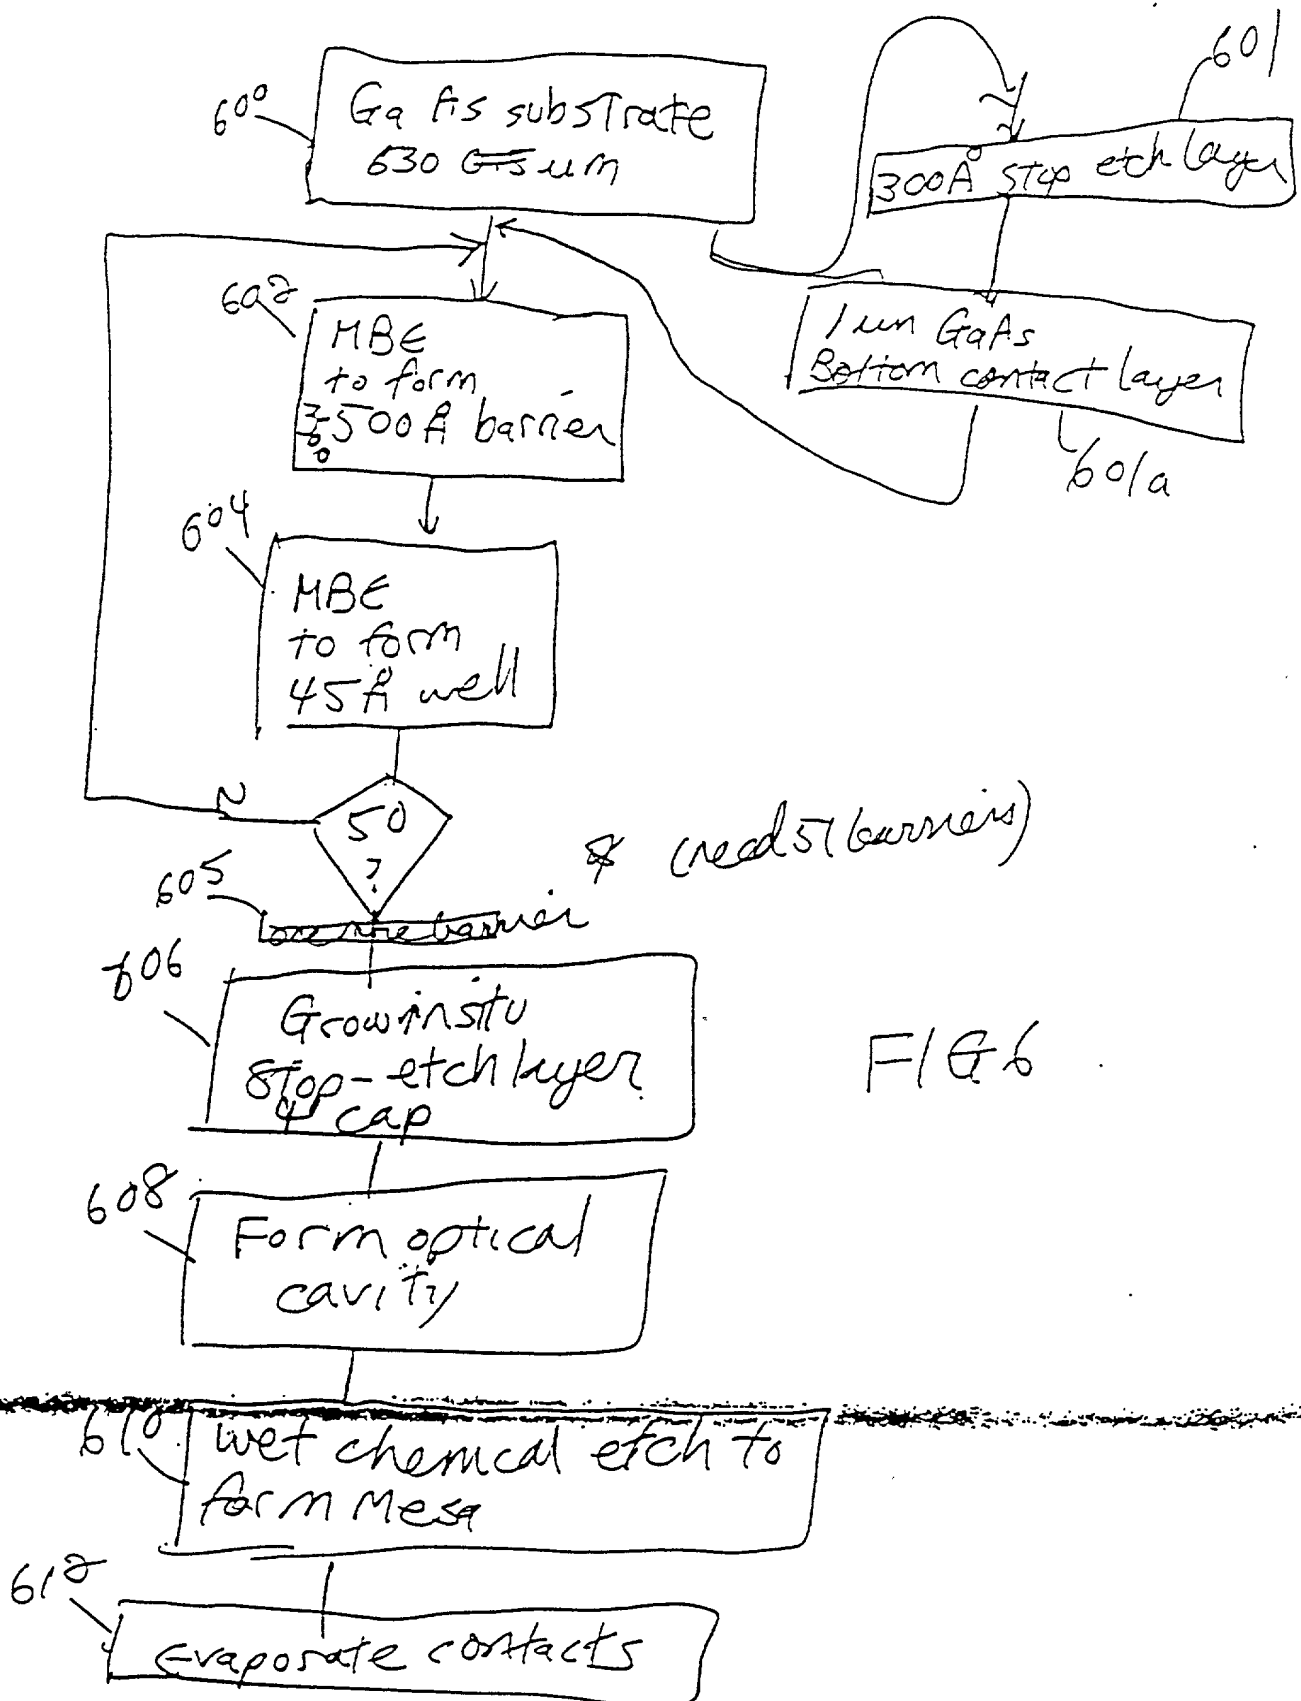 600
Ga As substrate
630 um
601
300Å stop etch layer
1 um GaAs
Bottom contact layer
601a
602
MBE
to form
300-500Å barrier
604
MBE
to form
45Å well
N
50
?
* (need 51 barriers)
605
one more barrier
606
Grow insitu
Stop-etch layer
+ cap
FIG 6
608
Form optical
cavity
610
wet chemical etch to
form mesa
612
Evaporate contacts